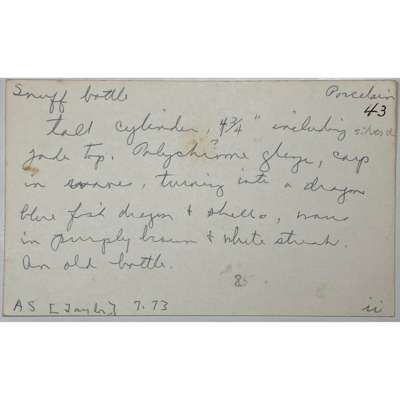 Snuff bottle Porcelain
43
tall cylinder, 4¾" including silver &
jade top. Polychrome glaze, carp
in waves, turning into a dragon
blue fish dragon & shells, waves
in purply brown & white streak.
An old bottle.
85
AS [Taylor] 7.73 ii